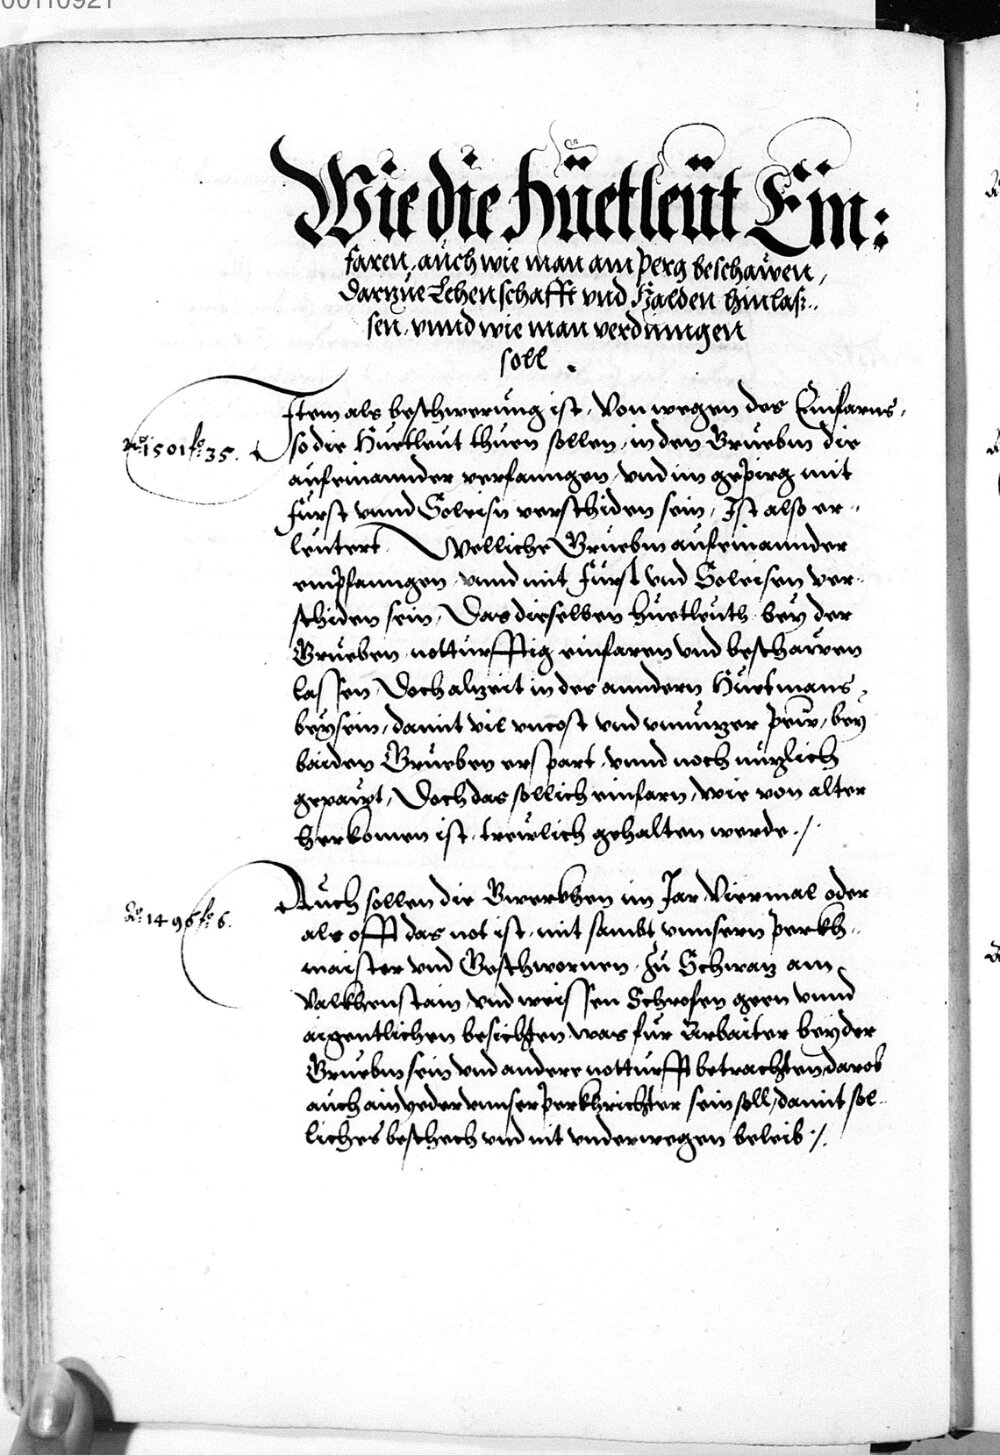 00110921
Wie die Hüetleüt Ein:
faren, auch wie man am Perg beschawen,
Dartzue Lehenschafft vnd Halden hinlas=
sen, vnnd wie man verdinngen
soll.
Item als beschwerung ist, Von wegen des Einfarns,
Ao. 1501 fo. 35.
so die Huetleut thuen sollen, in den Gruebm die
aufeinannder verfanngen, vnd im gepirg mit
Fürst vnnd Soleisn verschiden sein, Ist also er=
leutert. Welliche Gruebm aufeinannder
empfanngen vnnd mit Fürst vnd Soleisen ver=
schiden sein, Das dieselben huetleuth bey der
Grueben notturfftig einfaren vnd beschawen
lassen, Doch alzeit in des anndern Huetmans
beysein, damit vil vncost vnd vnnutzer Pew, bey
baiden Grueben erspart, vnnd noch nutzlich
gepaut, Doch das sollich einfarn, wie von alter
herkomen ist, trewlich gehalten werde ./.
Auch sollen die Gwerkhen im Jar Viermal oder
Ao. 1496 fo. 6.
als offt das not ist, mit sambt vnnsern Perkh=
maister vnd Geschwornen, Zu Schwaz am
Valkhenstain, vnd weissen Schrofen geen vnnd
aigentlichen besichten, was für Arbaiter bey der
Gruebm sein vnd andere notturfft betrachten, darob
auch ain yeder vnnser Perkhrichter sein soll, damit sol=
liches beschech vnd nit vnderwegen beleib ./.